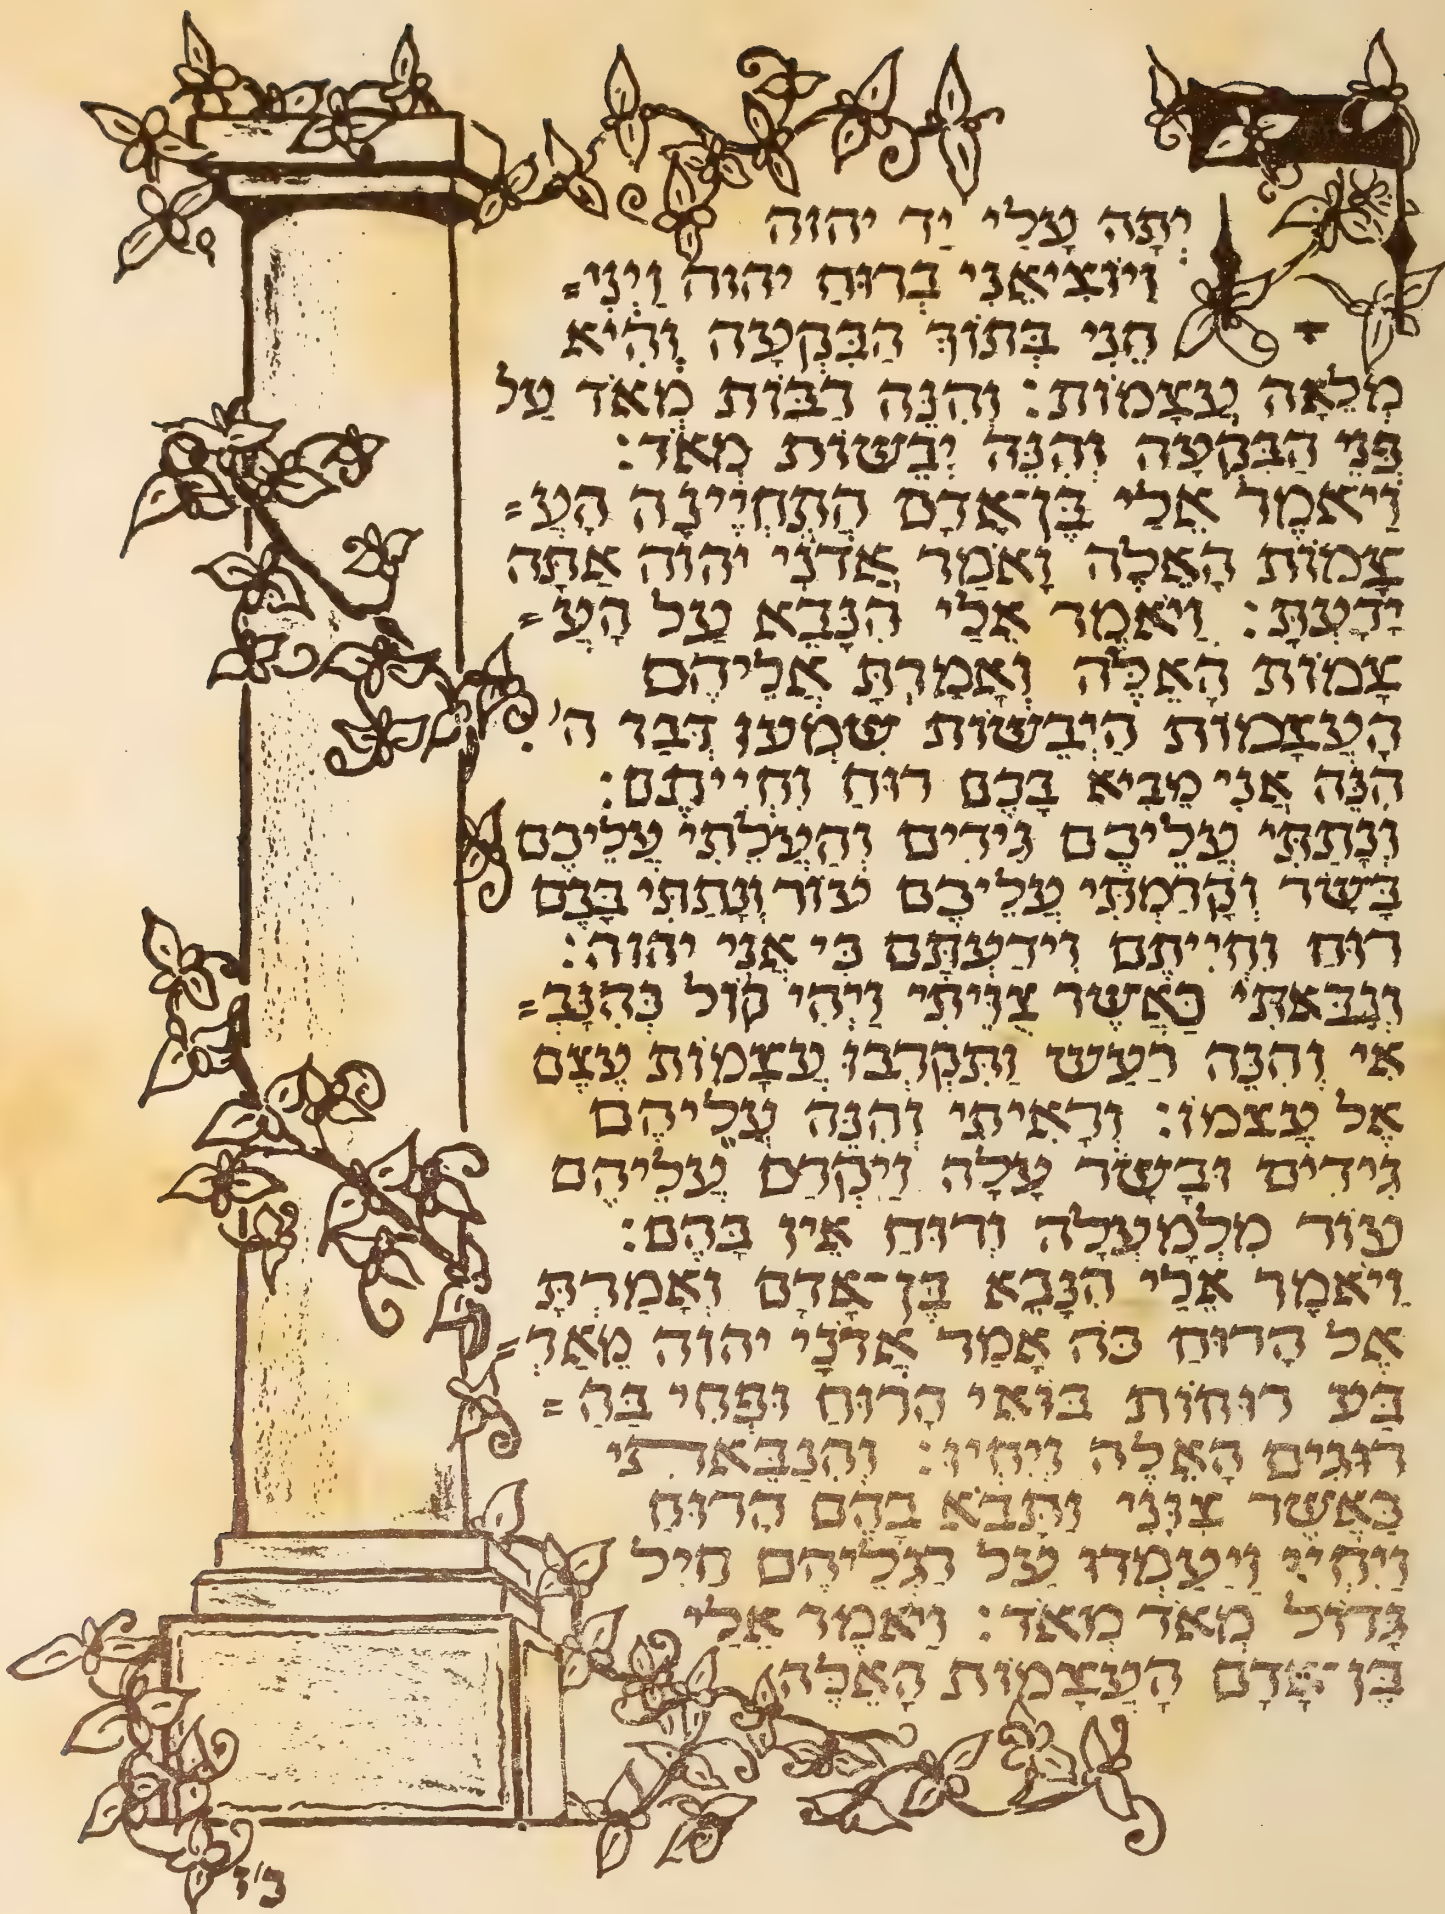 הָיְתָה עָלַי יַד יהוה
וַיּוֹצִיאֵנִי בְרוּחַ יהוה וַיְנִי=
חֵנִי בְּתוֹךְ הַבִּקְעָה וְהִיא
מְלֵאָה עֲצָמוֹת: וְהִנֵּה רַבּוֹת מְאֹד עַל
פְּנֵי הַבִּקְעָה וְהִנֵּה יְבֵשׁוֹת מְאֹד:
וַיֹּאמֶר אֵלַי בֶּן־אָדָם הֲתִחְיֶינָה הָעֲ=
צָמוֹת הָאֵלֶּה וָאֹמַר אֲדֹנָי יהוה אַתָּה
יָדָעְתָּ: וַיֹּאמֶר אֵלַי הִנָּבֵא עַל הָעֲ=
צָמוֹת הָאֵלֶּה וְאָמַרְתָּ אֲלֵיהֶם
הָעֲצָמוֹת הַיְבֵשׁוֹת שִׁמְעוּ דְּבַר ה'.
הִנֵּה אֲנִי מֵבִיא בָכֶם רוּחַ וִחְיִיתֶם:
וְנָתַתִּי עֲלֵיכֶם גִּידִים וְהַעֲלֵתִי עֲלֵיכֶם
בָּשָׂר וְקָרַמְתִּי עֲלֵיכֶם עוֹר וְנָתַתִּי בָכֶם
רוּחַ וִחְיִיתֶם וִידַעְתֶּם כִּי אֲנִי יהוה:
וְנִבֵּאתִי כַּאֲשֶׁר צֻוֵּיתִי וַיְהִי קוֹל כְּהִנָּבְ=
אִי וְהִנֵּה רַעַשׁ וַתִּקְרְבוּ עֲצָמוֹת עֶצֶם
אֶל עַצְמוֹ: וְרָאִיתִי וְהִנֵּה עֲלֵיהֶם
גִּידִים וּבָשָׂר עָלָה וַיִּקְרַם עֲלֵיהֶם
עוֹר מִלְמָעְלָה וְרוּחַ אֵין בָּהֶם:
וַיֹּאמֶר אֵלַי הִנָּבֵא בֶּן־אָדָם וְאָמַרְתָּ
אֶל הָרוּחַ כֹּה אָמַר אֲדֹנָי יהוה מֵאַרְ=
בַּע רוּחוֹת בּוֹאִי הָרוּחַ וּפְחִי בַּהֲ=
רוּגִים הָאֵלֶּה וְיִחְיוּ: וְהִנַּבֵּאתִי
כַּאֲשֶׁר צִוָּנִי וַתָּבֹא בָהֶם הָרוּחַ
וַיִּחְיוּ וַיַּעַמְדוּ עַל רַגְלֵיהֶם חַיִל
גָּדוֹל מְאֹד מְאֹד: וַיֹּאמֶר אֵלַי
בֶּן־אָדָם הָעֲצָמוֹת הָאֵלֶּה